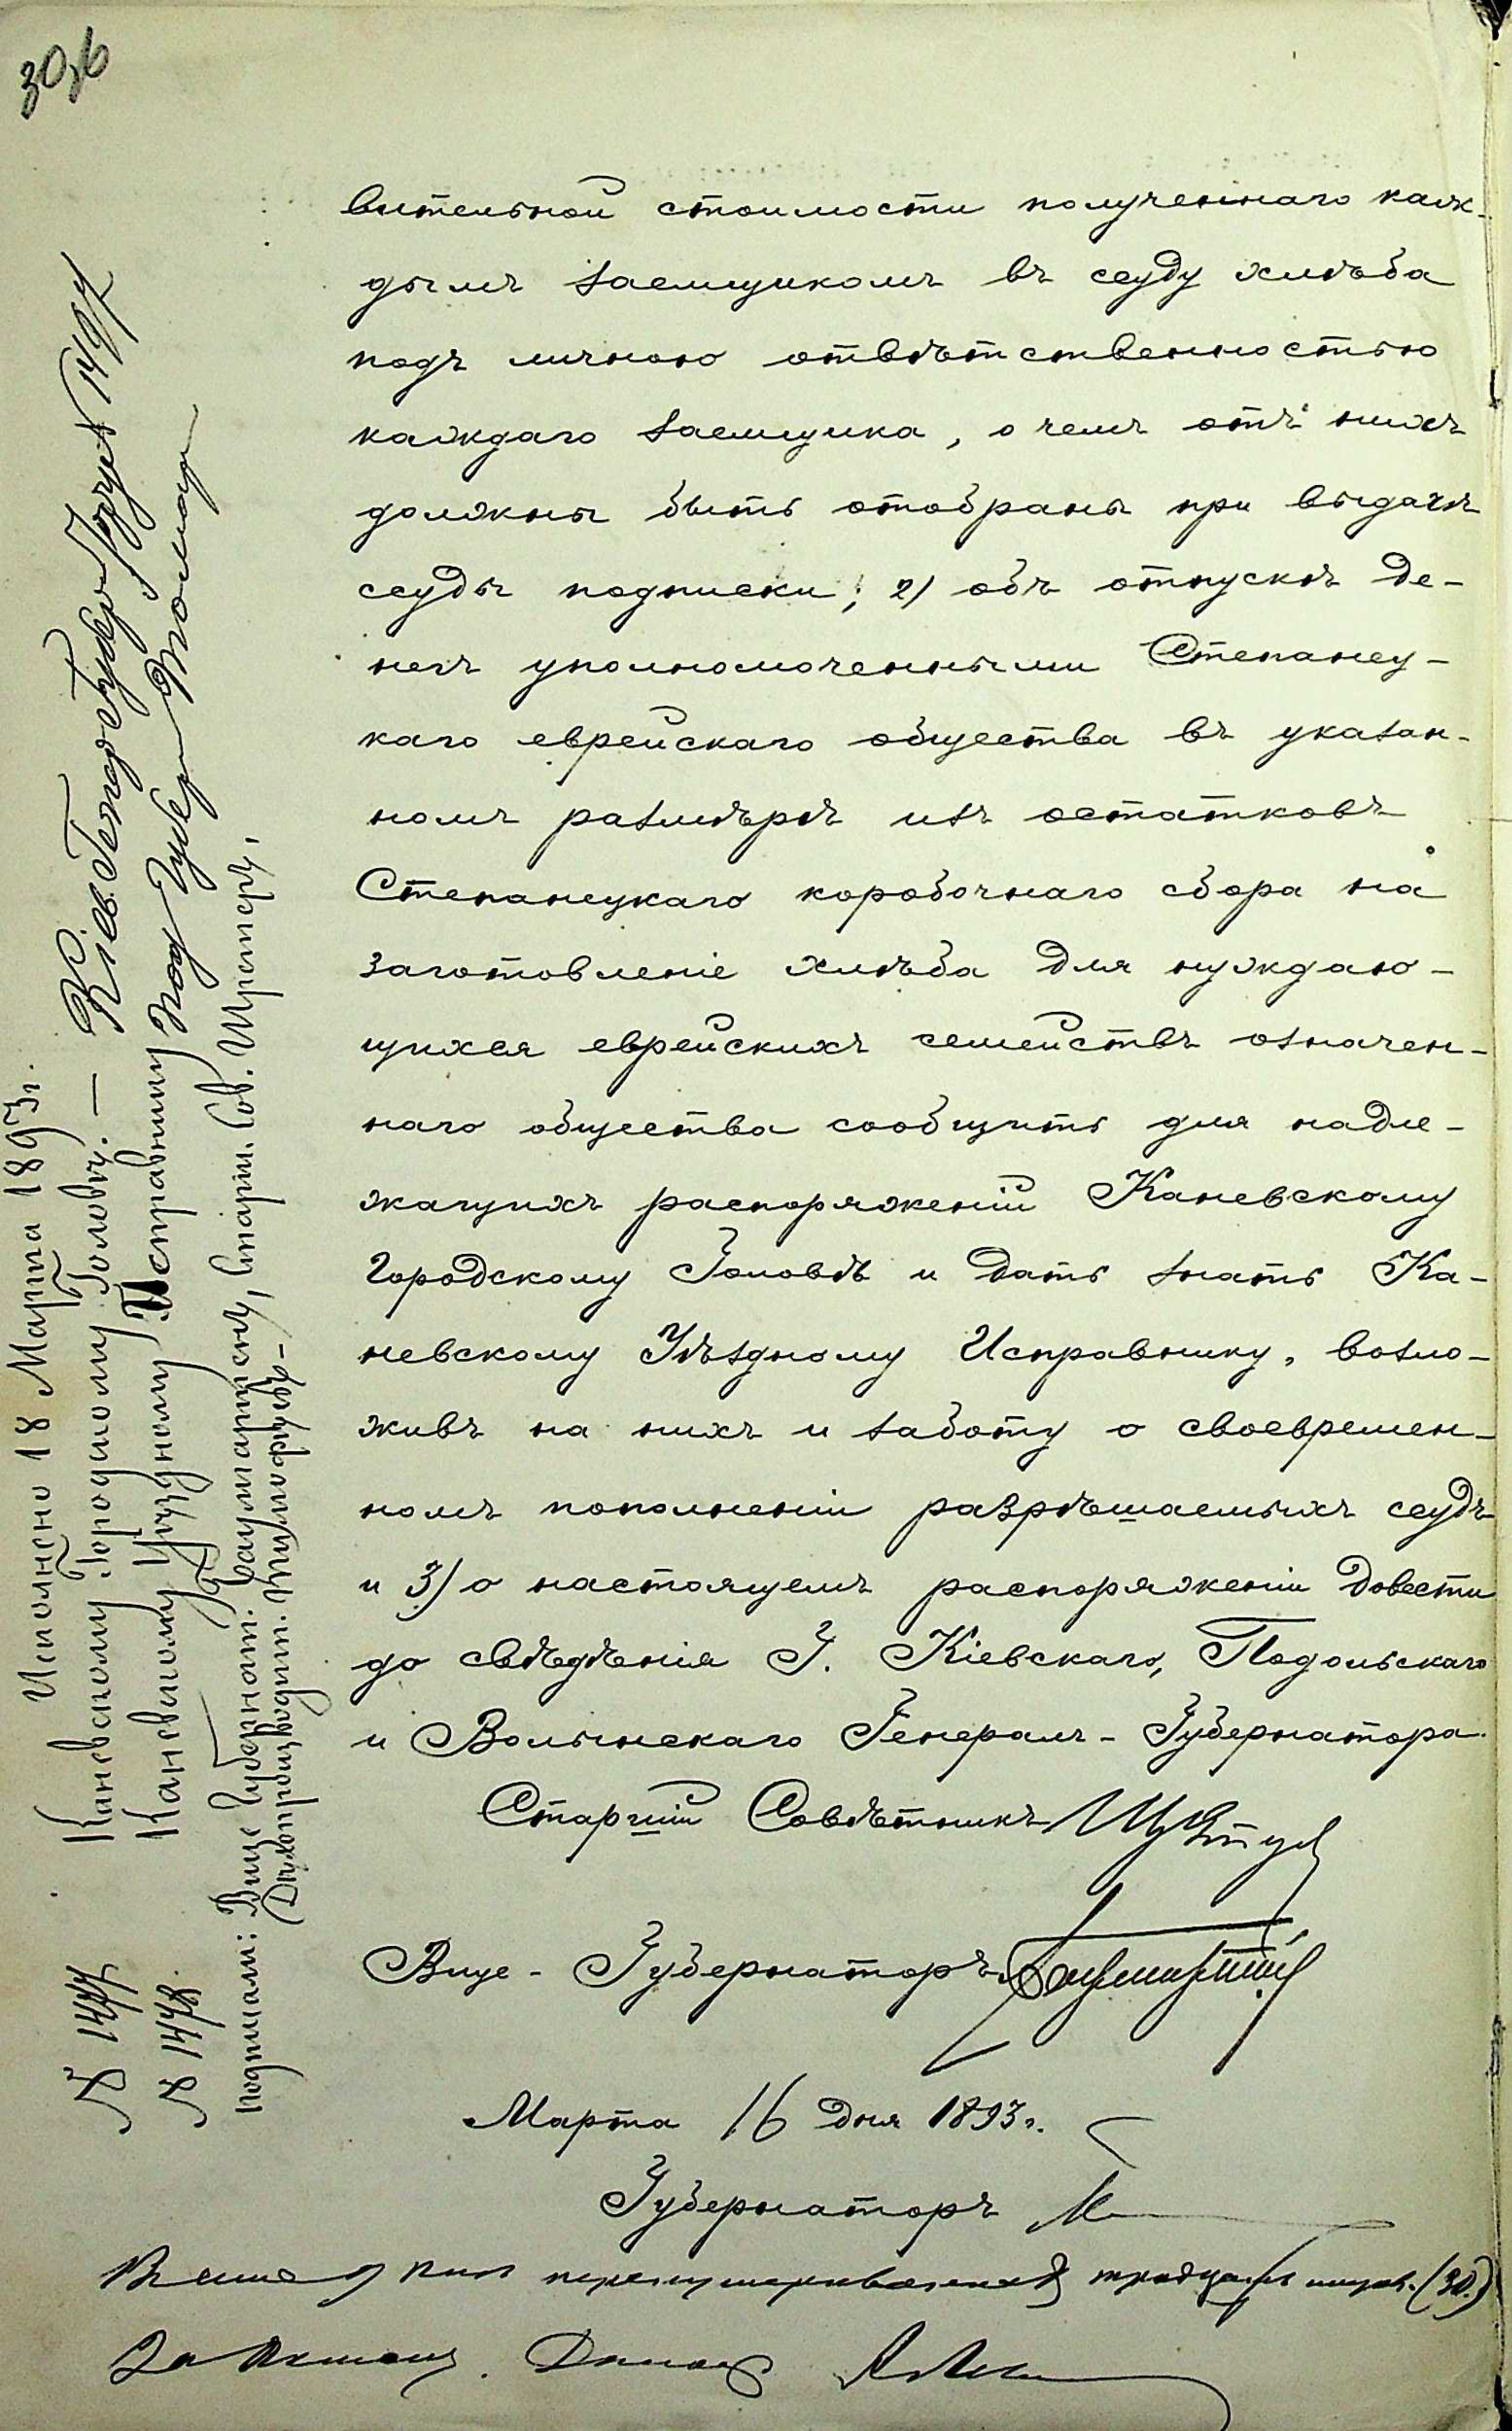 30об
вительной стоимости полученнаго каж-
дымъ заемщикомъ въ ссуду хлѣба
подъ личною отвѣтственностью
каждаго заемщика, о чемъ отъ нихъ
должны быть отобраны при выдачѣ
ссуды подписки; 2) объ отпускѣ де-
негъ уполномоченными Степанец-
каго еврейскаго общества въ указан-
номъ размѣрѣ изъ остатковъ
Степанецкаго коробочнаго сбора на
заготовленіе хлѣба для нуждаю-
щихся еврейскихъ семействъ означен-
наго общества сообщить для надле-
жащихъ распоряженій Каневскому
Городскому Головѣ и дать знать Ка-
невскому Уѣздному Исправнику, возло-
живъ на нихъ и заботу о своевремен-
номъ пополненіи разрѣшаемыхъ ссудъ
и 3) о настоящемъ распоряженіи довести
до свѣдѣнія Г. Кіевскаго, Подольскаго
и Волынскаго Генералъ-Губернатора.
Старшій Совѣтникъ
Вице-Губернаторъ Баумгартенъ
Марта 16 дня 1893 г.
Губернаторъ
тридцать (30)
Исполнено 18 Марта 1893 г.
№ 1477 Каневскому Городскому Головѣ. —
№ 1478. Каневскому Уѣздному Исправнику
Подписали: Вице Губернат. Баумгартенъ, Старш. Сов.
Дѣлопроизводит.
Кіев. Генер. Губер 1497